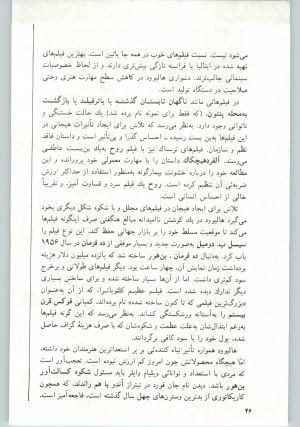 می‌شود نیست. نسبت فیلم‌های خوب در همه جا پائین است. بهترین فیلم‌های
تهیه شده در ایتالیا یا فرانسه تازگی بیش‌تری دارند و از لحاظ خصوصیات
سینمائی جالب‌ترند. دشواری هالیوود در کاهش سطح مهارت هنری وحتی
صلاحیت در دستگاه تولید است.
در فیلم‌هائی مانند ناگهان تابستان گذشته یا باترفیلد یا بازگشت
به‌محله پیتون، (که فقط برای نمونه نام برده شد) با حالت خستگی و
ناتوانی وجود دارد. به‌نظر می‌رسد که تلاش برای ایجاد تأثیرات هیجانی در
این فیلم‌ها به‌بن بست رسیده ـ احساس گذرا و بی‌تأثیر است و داستان فاقد
نظم و سازمان. فیلم‌های ترسناک نیز با فیلم روح به‌یک بن‌بست عاطفی
می‌رسند. آلفردهیچکاک داستان را با مهارت معمولی خود پرورانده و این
مطالعه خود را درباره خشونت بیمارگونه به‌منظور استفاده از حداکثر ارزش
ضربه‌ئی آن تنظیم کرده است. روح یک فیلم سرد و قساوت آمیز، و تقریباً
خالی از احساس انسانی است.
تلاش برای ایجاد هیجان در فیلم‌های مجلل و با شکوه شکل دیگری بخود
می‌گیرد. هالیوود در یک کوشش ناامیدانه مبالغ هنگفتی صرف اینگونه فیلم‌ها
می‌کند تا موقعیت مسلط خود را بر بازار جهانی حفظ کند. این نوع فیلم را
سیسل ب. دومیل به‌صورت جدید و بسیار موفقی از ده فرمان در سال ۱۹۵۶
باب کرد. به‌دنبال ده فرمان، بن‌هور ساخته شد که پانزده میلیون دلار هزینه
برداشت زمان نمایش آن، چهار ساعت بود. دیگر فیلم‌های طولانی و پرخرج
سود کم‌تری داشت. اما از آن‌ها بسیار ساخته شده و برای ساختن بسیاری
دیگر تدارک دیده شده است. فیلم عظیم کلئوپاترا، که از آن به‌عنوان
«بزرگ‌ترین فیلمی که تا کنون ساخته شده» نام برده‌اند، کمپانی فوکس قرن
بیستم را به‌آستانه ورشکستگی کشاند. به‌نظر می‌رسد که این گونه فیلم‌ها
به‌رغم ابتذال‌شان به‌علت عظمت و شکوه‌شان که با صرف هزینهٔ گزاف حاصل
شده، پول خود را با سود کافی برگردانند.
هالیوود همواره تأثیر تباه کننده‌ئی بر پر استعدادترین هنرمندان خود داشته،
امّا هیچگاه محصولاتش چون امروز کم ارزش نبوده است. تعجب‌آور است
که مردی با استعداد و توانائی ویلیام وایلر باید مسئول شکوه کسالت‌آور
بن‌هور باشد. دیدن نام جان فورد در تیتراژ آندو با هم راندند، که همچون
کاریکاتوری از بهترین وسترن‌های چهل سال گذشته است، فاجعه‌آمیز است.
۴۶